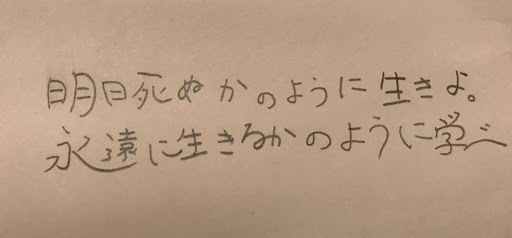 明日死ぬかのように生きよ。
永遠に生きるかのように学べ